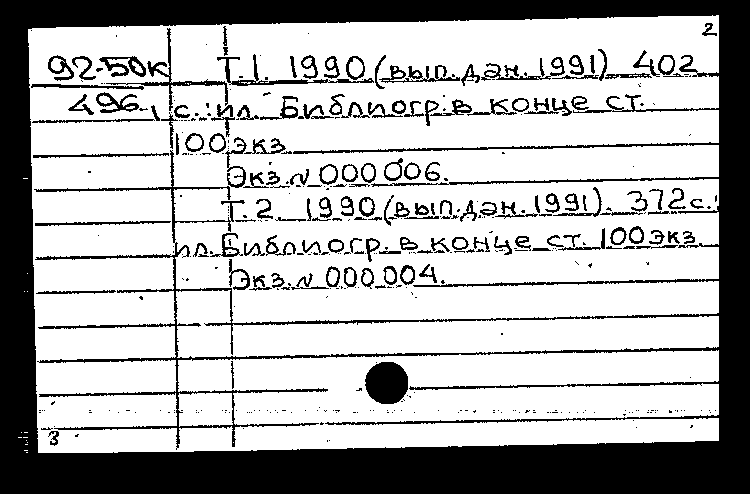 2
92-50к Т.1. 1990 (вып.дан. 1991) 402
496, с.: ил. Библиогр. в конце ст.
100 экз.
Экз. N 000 006.
Т. 2. 1990 (вып.дан. 1991). 372 с.:
ил. Библиогр. в конце ст. 100 экз.
Экз. N 000 004.
3